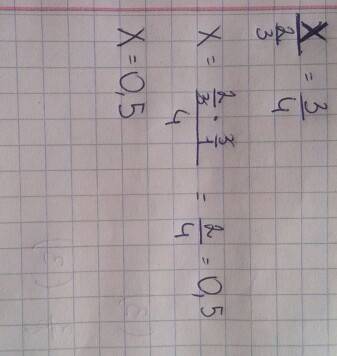 X/(2/3) = 3/4
X = (2/3 · 3/1)/4 = 2/4 = 0,5
X = 0,5